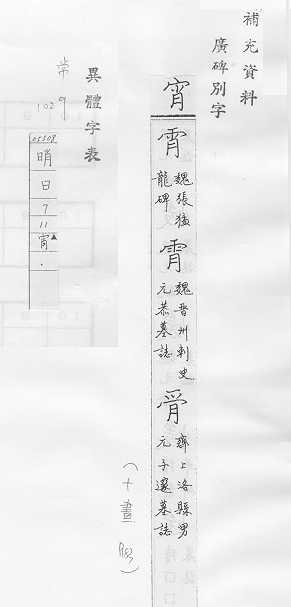 補充資料
廣碑別字
宵
霄
魏張猛
龍碑
霄
魏晉州刺史
元恭墓誌
齊上洛縣男
元子邃墓誌
(十畫 )
異體字表
1029
05508
晴
日
7
11
宵